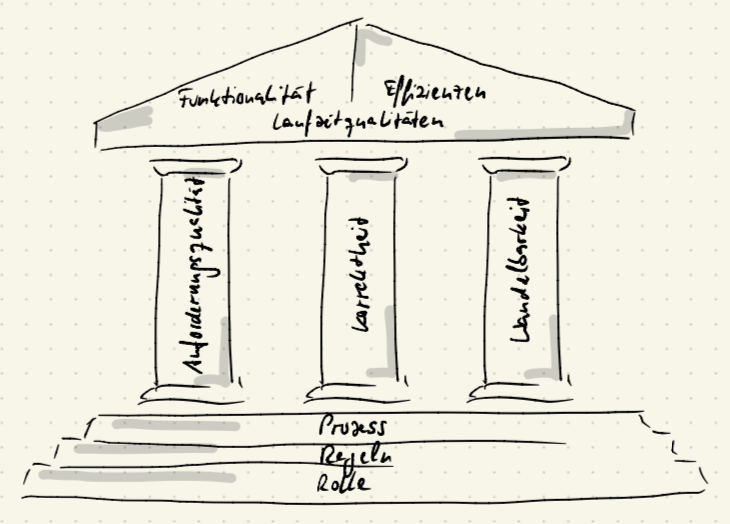 Funktionalität Effizienzen
Laufzeitqualitäten
Anforderungsqualität
Korrektheit
Wandelbarkeit
Prozess
Regeln
Rolle